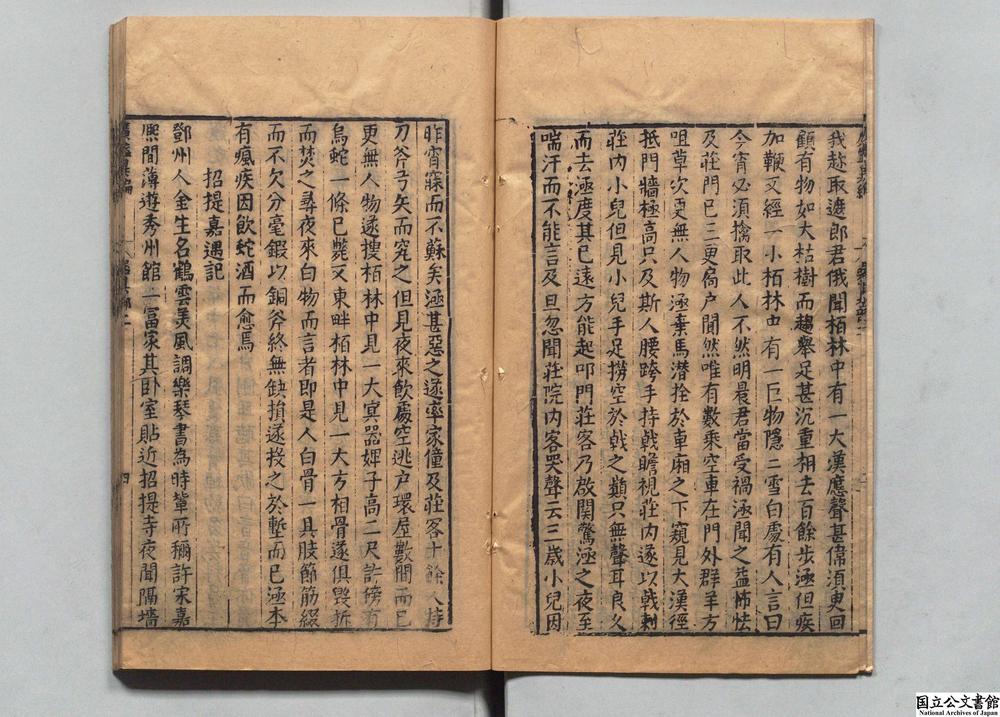 我趂取遮郎君俄聞栢林中有一大漢應聲甚偉須更回
顧有物如大枯樹而趨舉足甚沉重相去百餘步涵但疾
加鞭又經一小栢林中有一巨物隱二雪白處有人言曰
今宵必須擒取此人不然明晨君當受禍涵聞之益怖怯
及莊門巳三更扄户閴然唯有數乘空車在門外群羊方
咀草次更無人物涵棄馬潛拴於車廂之下窺見大漢徑
抵門牆極高只及斯人腰跨手持戟瞻視莊内遂以戟刺
莊内小兒但見小兒手足撈空於戟之巔只無聲耳良久
而去涵度其巳遠方能起叩門莊客乃啟関驚涵之夜至
喘汗而不能言及旦忽聞莊院内客哭聲云三歳小兒因
昨宵寐而不蘇矣涵甚惡之遂率家僮及莊客十餘人持
刀斧弓矢而究之但見夜來飲處空逃户環屋數間而巳
更無人物遂搜栢林中見一大冥器婢子高二尺許傍有
烏蛇一條巳斃又東畔栢林中見一大方相骨遂俱毁拆
而焚之尋夜來白物而言者即是人白骨一具肢節筋綴
而不欠分毫鍜以銅斧終無缺損遂投之於塹而巳涵本
有瘋疾因飲蛇酒而愈焉
招提嘉遇記
鄧州人金生名鶴雲美風調樂琴書為時輩所稱許宋嘉
熈間薄遊秀州館一富家其卧室貼近招提寺夜聞隔墻
四
国立公文書館
National Archives of Japan